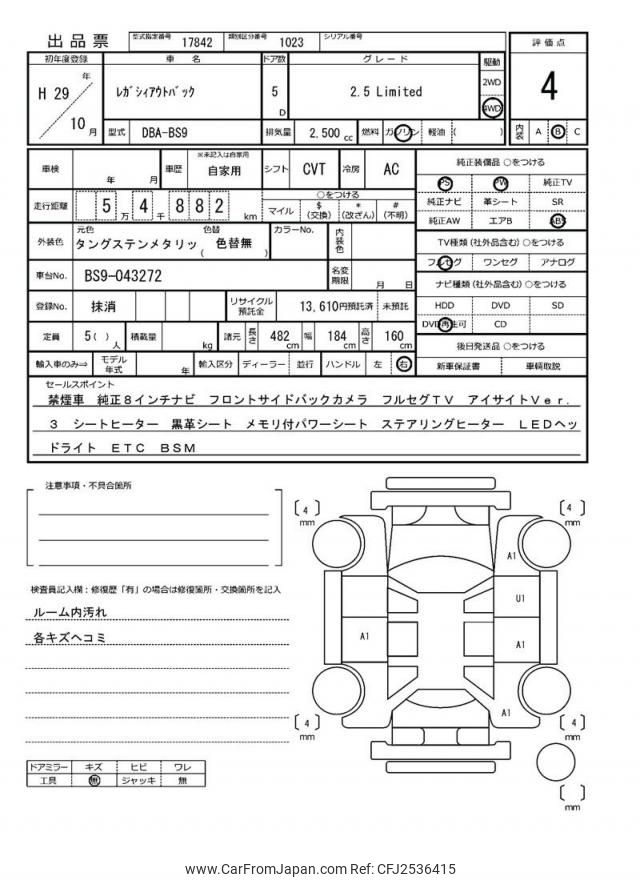 出品票 型式指定番号 17842 類別区分番号 1023 シリアル番号
初年度登録 車名 ドア数 グレード 駆動 評価点
H 29 年 10 月 ﾚｶﾞｼｨｱｳﾄﾊﾞｯｸ 5 D 2.5 Limited 2WD 4WD 4
型式 DBA-BS9 排気量 2,500 cc 燃料 ガソリン 軽油 ( ) 内装 A B C
車検 年 月 車歴 ※未記入は自家用 自家用 シフト CVT 冷房 AC
純正装備品 ○をつける
PS PW 純正TV
純正ナビ 革シート SR
純正AW エアB ABS
走行距離 5 万 4 千 8 8 2 km
○をつける
マイル $ (交換) * (改ざん) # (不明)
外装色 元色 タングステンメタリッ 色替 ( 色替無 ) カラーNo. 内装色
TV種類 (社外品含む) ○をつける
フルセグ ワンセグ アナログ
車台No. BS9-043272 名変期限 月 日
ナビ種類 (社外品含む) ○をつける
HDD DVD SD
DVD再生可 CD
登録No. 抹消 リサイクル預託金 13,610円預託済 未預託
定員 5( ) 人 積載量 kg 諸元 長さ 482 cm 幅 184 cm 高さ 160 cm
後日発送品 ○をつける
新車保証書 車輌取説
輸入車のみ⇒ モデル年式 年 輸入区分 ディーラー 並行 ハンドル 左 右
セールスポイント
禁煙車 純正8インチナビ フロントサイドバックカメラ フルセグTV アイサイトVer.
3 シートヒーター 黒革シート メモリ付パワーシート ステアリングヒーター LEDヘッ
ドライト ETC BSM
注意事項・不具合箇所
検査員記入欄：修復歴「有」の場合は修復箇所・交換箇所を記入
ルーム内汚れ
各キズヘコミ
ドアミラー キズ ヒビ ワレ
工具 無 ジャッキ 無
[ 4 ] mm
[ 4 ] mm
A1
U1
A1
A1
A1
[ 4 ] mm
[ 4 ] mm
[ ] mm
www.CarFromJapan.com Ref: CFJ2536415